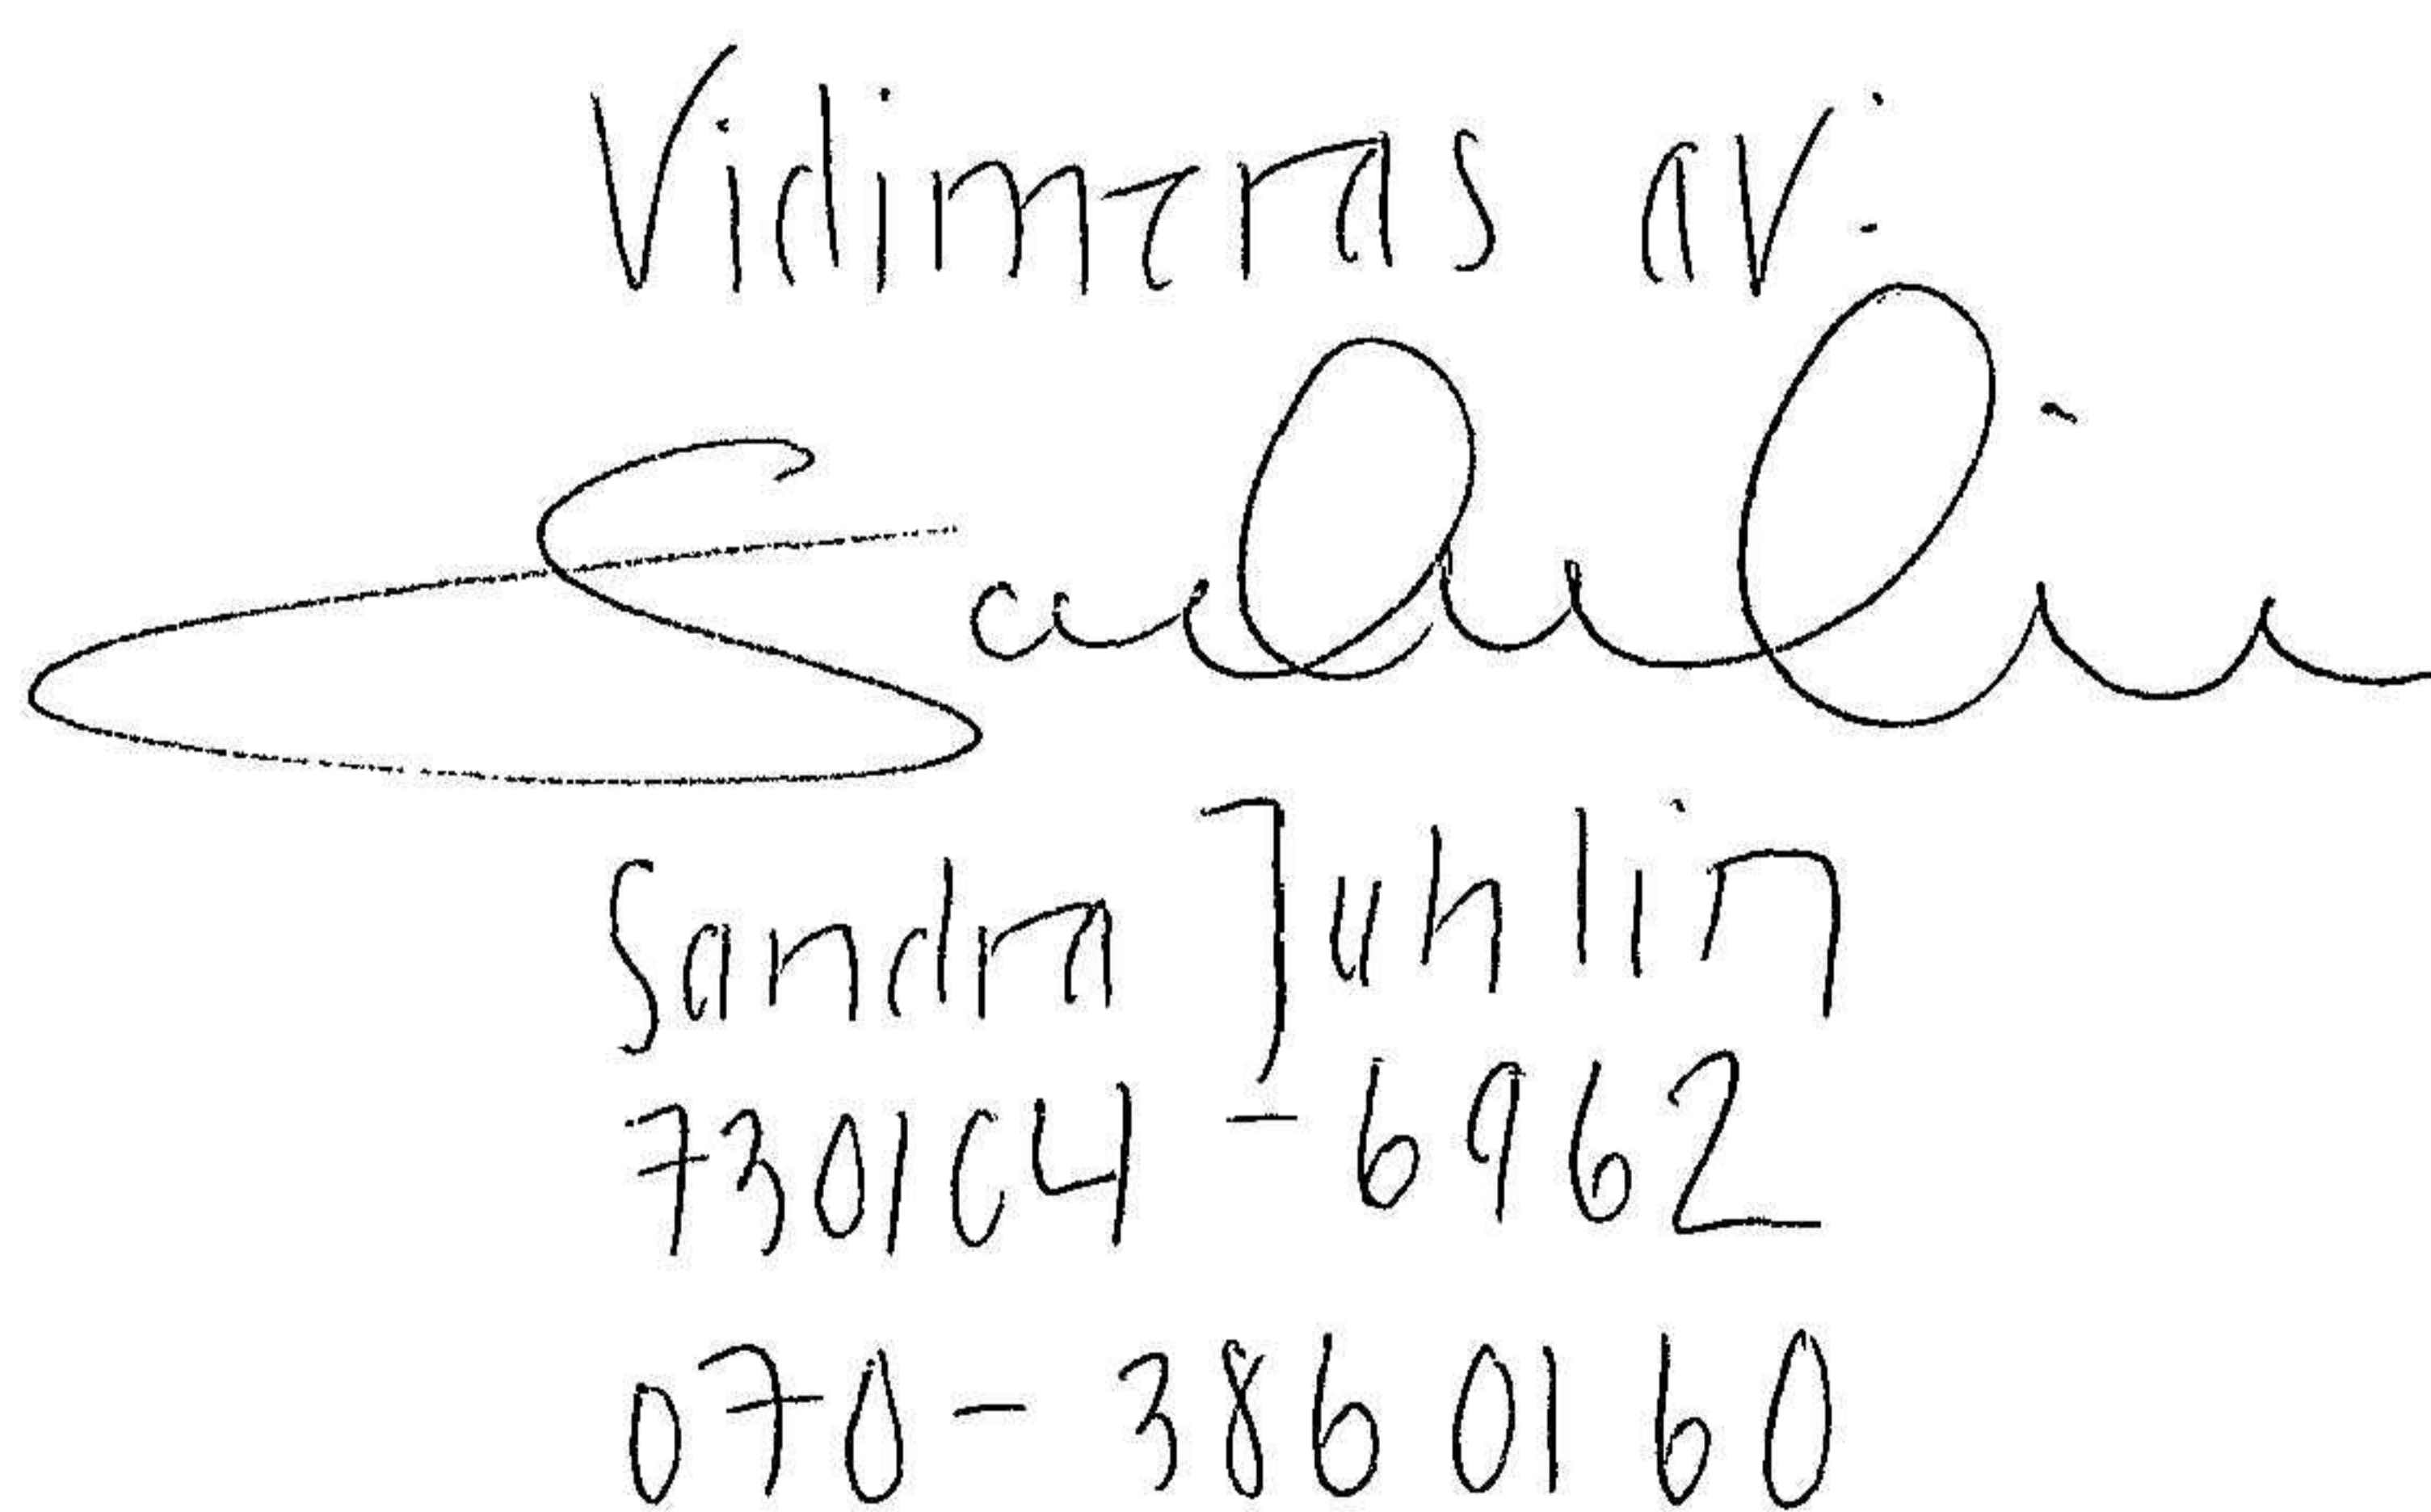 Vidimeras av:
Sandra Juhlin
730104-6962
070-3860160